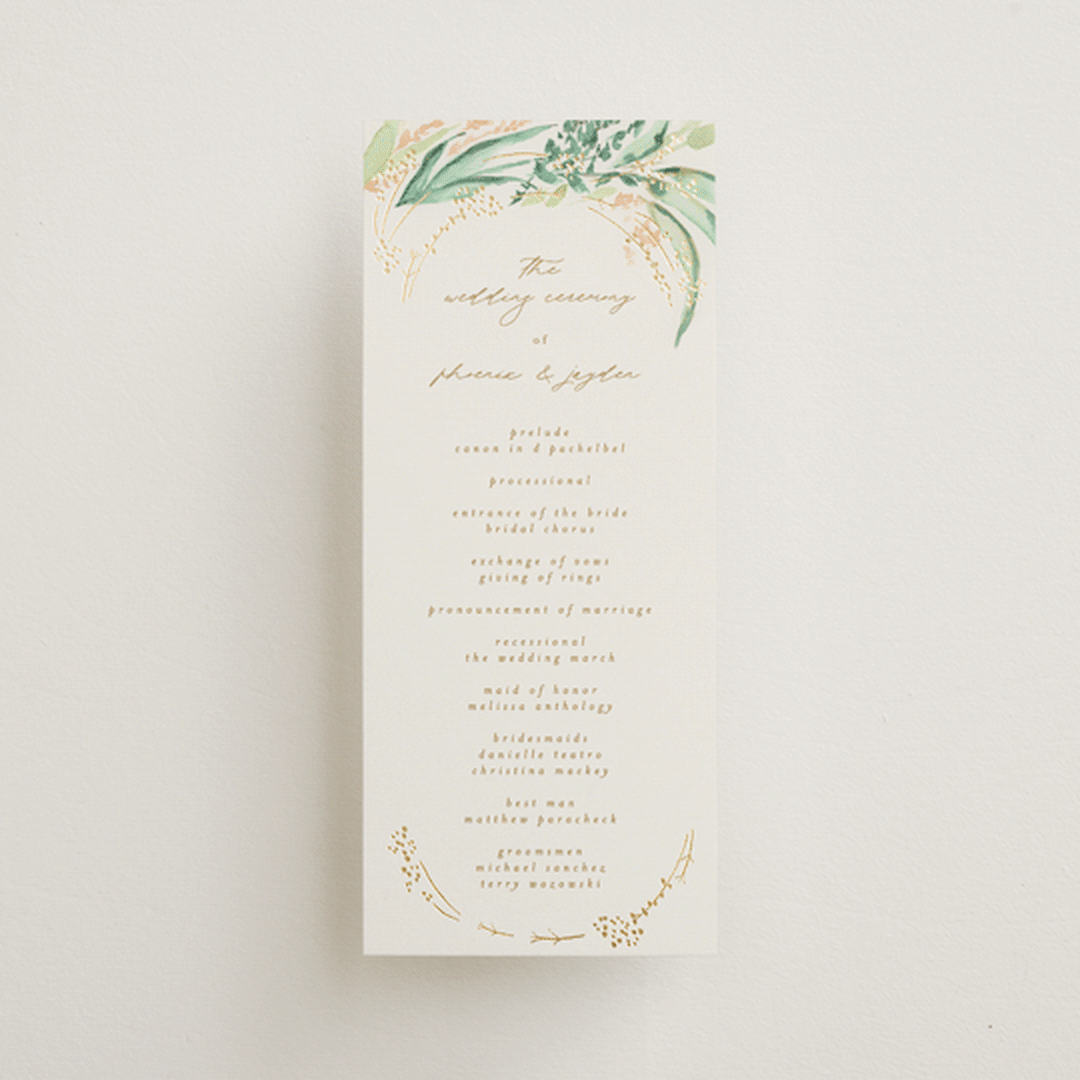 the
wedding ceremony
of
phoenix & jayden
prelude
canon in d pachelbel
processional
entrance of the bride
bridal chorus
exchange of vows
giving of rings
pronouncement of marriage
recessional
the wedding march
maid of honor
melissa anthology
bridesmaids
danielle teatro
christina mackey
best man
matthew paracheck
groomsmen
michael sanchez
terry wozowski